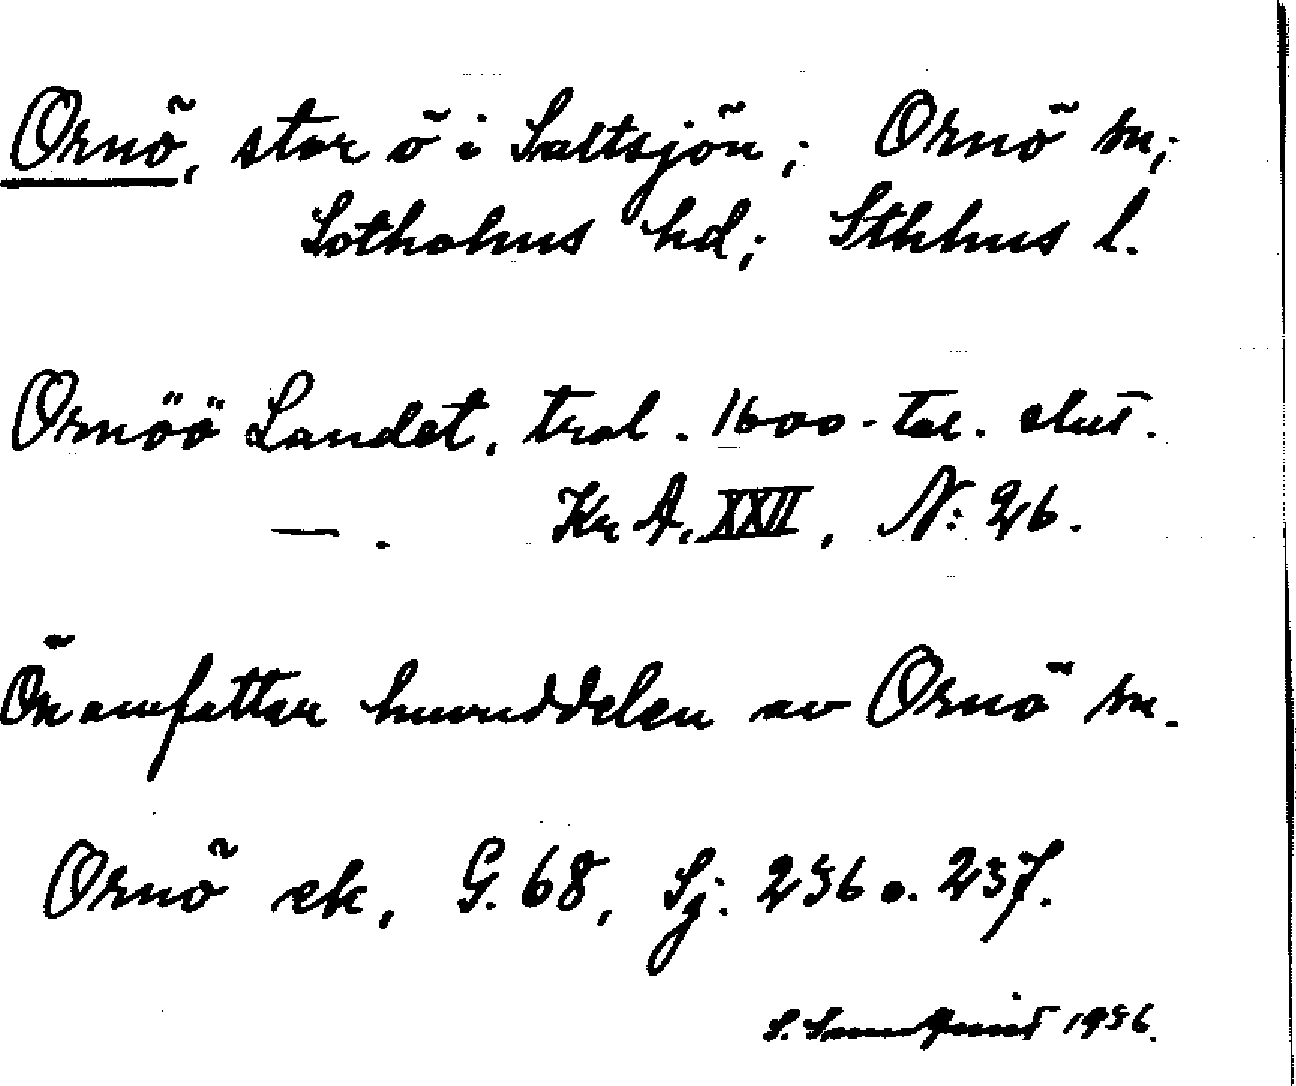 Ornö, stor ö i Saltsjön; Ornö sn;
Sotholms hd; Sthlms l.
Ornöö Landet, trol. 1600-tal. slut.
—. Kr A. XXII, N: 26.
Ön omfattar huvuddelen av Ornö sn.
Ornö ek, G. 68, Sj. 236 o. 237.
1936.